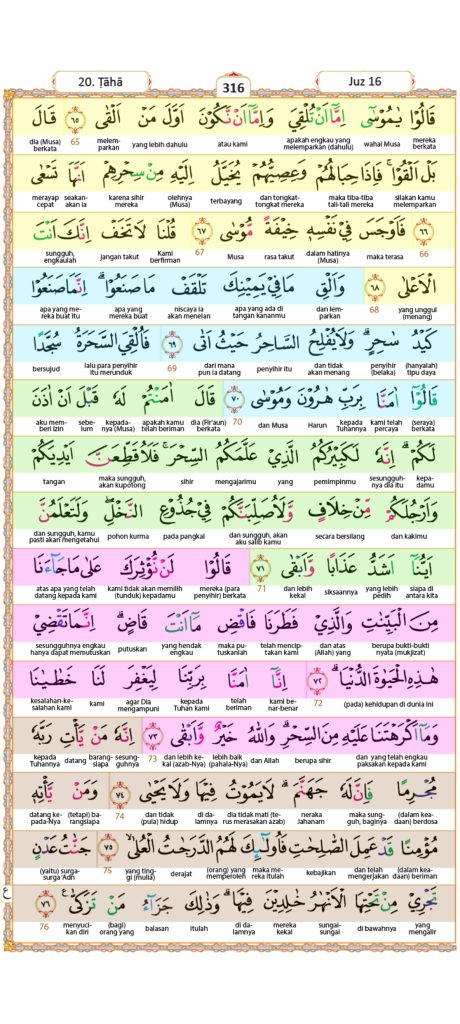 20. Ṭāhā
316
Juz 16
قَالُوْا يٰمُوْسٰٓى اِمَّآ اَنْ تُلْقِيَ وَاِمَّآ اَنْ نَّكُوْنَ اَوَّلَ مَنْ اَلْقٰى ٦٥ قَالَ
mereka berkata wahai Musa apakah engkau yang melemparkan (dahulu) atau kami yang lebih dahulu melemparkan 65 dia (Musa) berkata
بَلْ اَلْقُوْاۚ فَاِذَا حِبَالُهُمْ وَعِصِيُّهُمْ يُخَيَّلُ اِلَيْهِ مِنْ سِحْرِهِمْ اَنَّهَا تَسْعٰى
silakan kamu melemparkan maka tiba-tiba tali-tali mereka dan tongkat-tongkat mereka terbayang olehnya (Musa) karena sihir mereka seakan-akan ia merayap cepat
٦٦ فَاَوْجَسَ فِيْ نَفْسِهٖ خِيْفَةً مُّوْسٰى ٦٧ قُلْنَا لَا تَخَفْ اِنَّكَ اَنْتَ
66 maka terasa dalam hatinya (Musa) rasa takut Musa 67 Kami berfirman jangan takut sungguh, engkaulah
الْاَعْلٰى ٦٨ وَاَلْقِ مَا فِيْ يَمِيْنِكَ تَلْقَفْ مَا صَنَعُوْاۗ اِنَّمَا صَنَعُوْا
yang unggul (menang) 68 dan lemparkan apa yang ada di tangan kananmu niscaya ia akan menelan apa yang mereka buat apa yang mereka buat itu
كَيْدُ سٰحِرٍۗ وَلَا يُفْلِحُ السَّاحِرُ حَيْثُ اَتٰى ٦٩ فَاُلْقِيَ السَّحَرَةُ سُجَّدًا
(hanyalah) tipu daya penyihir (belaka) dan tidak akan menang penyihir itu dari mana pun ia datang 69 lalu para penyihir itu merunduk bersujud
قَالُوْٓا اٰمَنَّا بِرَبِّ هٰرُوْنَ وَمُوْسٰى ٧٠ قَالَ اٰمَنْتُمْ لَهٗ قَبْلَ اَنْ اٰذَنَ
(seraya) berkata kami telah percaya kepada Tuhannya Harun dan Musa 70 dia (Fir'aun) berkata apakah kamu telah beriman kepadanya (Musa) sebelum aku memberi izin
لَكُمْۗ اِنَّهٗ لَكَبِيْرُكُمُ الَّذِيْ عَلَّمَكُمُ السِّحْرَۚ فَلَاُقَطِّعَنَّ اَيْدِيَكُمْ
kepadamu sesungguhnya dia itu pemimpinmu yang mengajarimu sihir maka sungguh, akan kupotong tangan
وَاَرْجُلَكُمْ مِّنْ خِلَافٍ وَّلَاُصَلِّبَنَّكُمْ فِيْ جُذُوْعِ النَّخْلِۖ وَلَتَعْلَمُنَّ
dan kakimu secara bersilang dan sungguh, akan aku salib kamu pada pangkal pohon kurma dan sungguh, kamu pasti akan mengetahui
اَيُّنَآ اَشَدُّ عَذَابًا وَّاَبْقٰى ٧١ قَالُوْا لَنْ نُّؤْثِرَكَ عَلٰى مَا جَاۤءَنَا
siapa di antara kita yang lebih pedih siksaannya dan lebih kekal 71 mereka (para penyihir) berkata kami tidak akan memilih (tunduk) kepadamu atas apa yang telah datang kepada kami
مِنَ الْبَيِّنٰتِ وَالَّذِيْ فَطَرَنَا فَاقْضِ مَآ اَنْتَ قَاضٍۗ اِنَّمَا تَقْضِيْ
berupa bukti-bukti nyata (mukjizat) dan atas (Allah) yang telah menciptakan kami maka putuskanlah yang hendak engkau putuskan sesungguhnya engkau hanya dapat memutuskan
هٰذِهِ الْحَيٰوةَ الدُّنْيَاۗ ٧٢ اِنَّآ اٰمَنَّا بِرَبِّنَا لِيَغْفِرَ لَنَا خَطٰيٰنَا
(pada) kehidupan di dunia ini 72 kami benar-benar telah beriman kepada Tuhan Kami agar Dia mengampuni kami kesalahan-kesalahan kami
وَمَآ اَكْرَهْتَنَا عَلَيْهِ مِنَ السِّحْرِۗ وَاللّٰهُ خَيْرٌ وَّاَبْقٰى ٧٣ اِنَّهٗ مَنْ يَّأْتِ رَبَّهٗ
dan yang telah engkau paksakan kepada kami berupa sihir dan Allah lebih baik (pahala-Nya) dan lebih kekal (azab-Nya) 73 sesungguhnya barangsiapa datang kepada Tuhannya
مُجْرِمًا فَاِنَّ لَهٗ جَهَنَّمَۗ لَا يَمُوْتُ فِيْهَا وَلَا يَحْيٰى ٧٤ وَمَنْ يَّأْتِهٖ
(dalam keadaan) berdosa maka sungguh, baginya neraka Jahanam dia tidak mati (terus merasakan azab) di dalamnya dan tidak (pula) hidup 74 (tetapi) barangsiapa datang kepada-Nya
مُؤْمِنًا قَدْ عَمِلَ الصّٰلِحٰتِ فَاُولٰۤىِٕكَ لَهُمُ الدَّرَجٰتُ الْعُلٰى ٧٥ جَنّٰتُ عَدْنٍ
(dalam keadaan) beriman dan telah mengerjakan kebajikan maka mereka itulah (orang) yang memperoleh derajat yang tinggi (mulia) 75 (yaitu) surga-surga 'Adn
ع
تَجْرِيْ مِنْ تَحْتِهَا الْاَنْهٰرُ خٰلِدِيْنَ فِيْهَاۗ وَذٰلِكَ جَزٰۤؤُا مَنْ تَزَكّٰى ٧٦
yang mengalir di bawahnya sungai-sungai mereka kekal di dalamnya itulah balasan (bagi) orang yang menyucikan diri 76